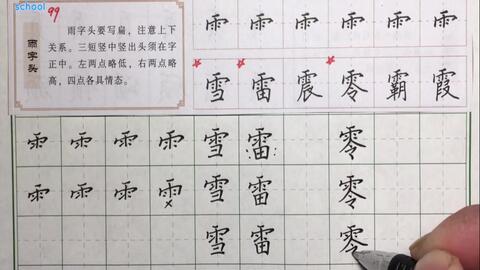 school
99
雨字头
雨字头要写扁，注意上下
关系。三短竖中竖出头须在字
正中。左两点略低，右两点略
高，四点各具情态。
雨 雨 雨 雨 雨 雨
雪 雷 震 零 霸 霞
雨 雨 雨 雨 雪 雷 零
雨 雨 雨 雨 雪 雷 零
雪 雷 零